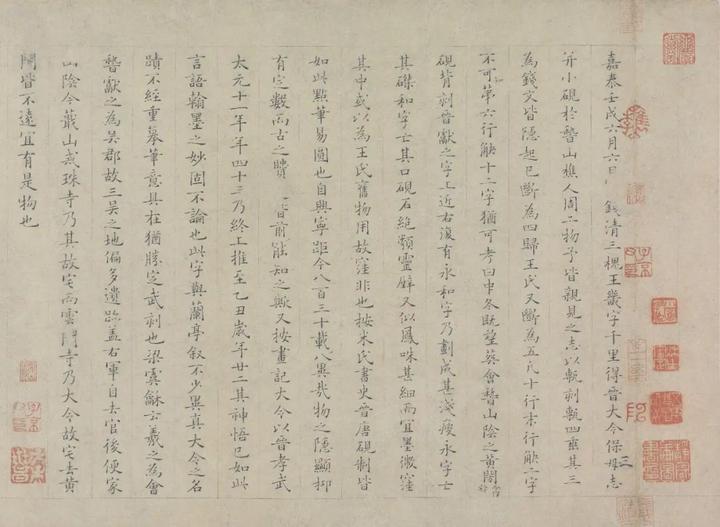 嘉泰壬戌六月六日錢清三槐王畿字千里得晉大令保母志
并小硯於稽山樵人周二物予皆親見之志以甎刻甎四垂其三
為錢文皆隱起已斷為四歸王氏又斷為五凡十行末行缺二字
不可知第六行缺十二字猶可考曰中冬既望葬會稽山陰之黃閍
硯背刻晉獻之字上近右復有永和字乃劃成甚淺瘦永字亡
其磔和字亡其口硯石絕類靈壁又似鳳咮甚細而宜墨微窪
其中或以為王氏舊物用故窪非也按米氏書史晉唐硯制皆
如此點筆易圓也自興寧距今八百三十載八異哉物之隱顯抑
有定數而古之賢者前能知之歟又按畫記大令以晉孝武
太元十一年年四十三乃終上推至乙丑歲年廿二其神悟已如此
言語翰墨之妙固不論也此字與蘭亭敘不少異真大令之名
蹟不經重摹筆意具在猶勝定武刻也梁虞龢云羲之為會
稽獻之為吳郡故三吳之地偏多遺跡蓋右軍自去官後便家
山陰今蕺山戒珠寺乃其故宅而雲門寺乃大令故宅去黃
閍皆不遠宜有是物也